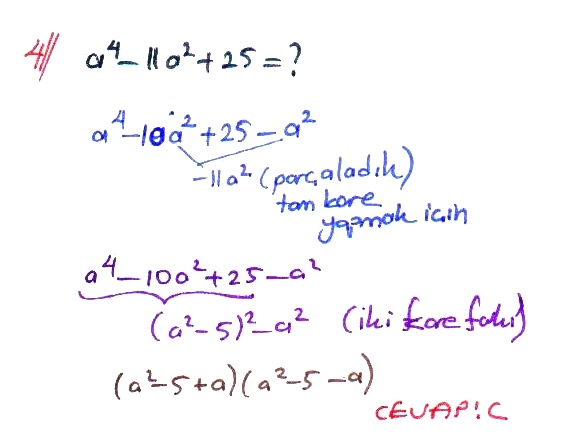 4// a⁴ - 11a² + 25 = ?
a⁴ - 10a² + 25 - a²
-11a² (parçaladık)
tam kare
yapmak için
a⁴ - 10a² + 25 - a²
(a² - 5)² - a² (iki kare farkı)
(a² - 5 + a)(a² - 5 - a)
CEVAP: C